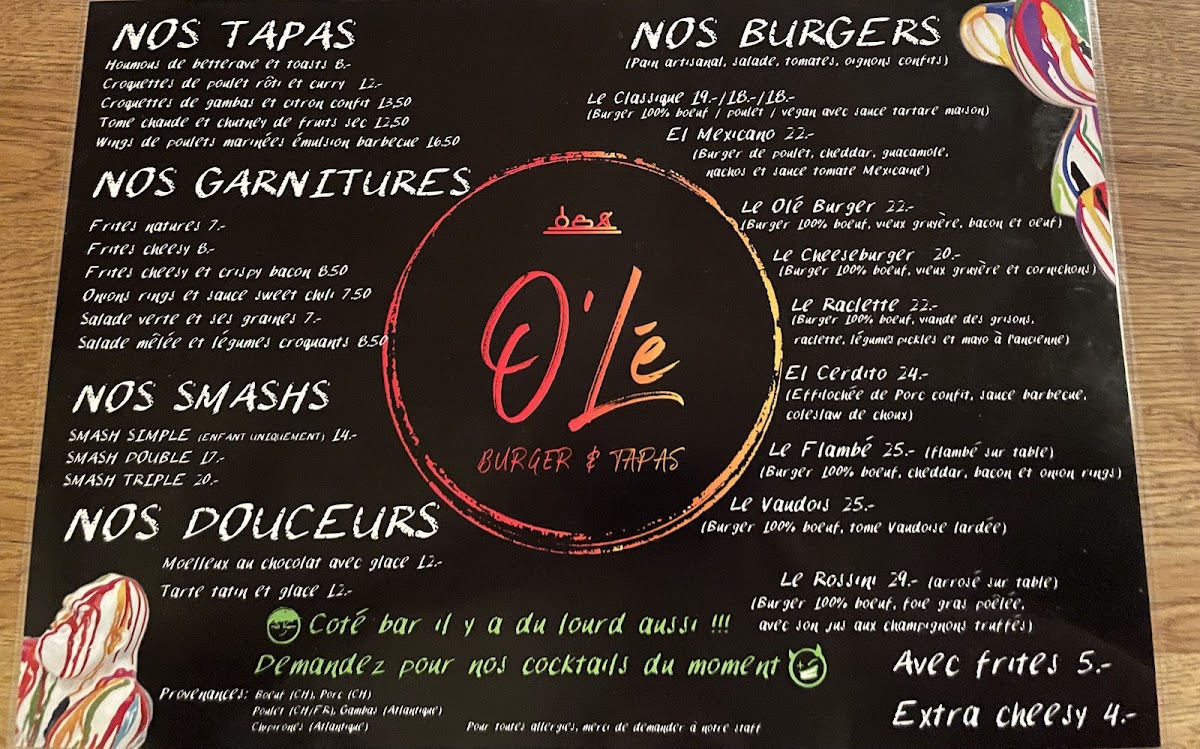 NOS TAPAS
Houmous de betterave et toasts 8.-
Croquettes de poulet rôti et curry 12.-
Croquettes de gambas et citron confit 13.50
Tome chaude et chutney de fruits sec 12.50
Wings de poulets marinées émulsion barbecue 16.50
NOS GARNITURES
Frites natures 7.-
Frites cheesy 8.-
Frites cheesy et crispy bacon 8.50
Onions rings et sauce sweet chili 7.50
Salade verte et ses graines 7.-
Salade mêlée et légumes croquants 8.50
NOS SMASHS
SMASH SIMPLE (ENFANT UNIQUEMENT) 14.-
SMASH DOUBLE 17.-
SMASH TRIPLE 20.-
NOS DOUCEURS
Moelleux au chocolat avec glace 12.-
Tarte tatin et glace 12.-
O'Lé
BURGER & TAPAS
NOS BURGERS
(Pain artisanal, salade, tomates, oignons confits)
Le Classique 19.-/18.-/18.-
(Burger 100% boeuf / poulet / vegan avec sauce tartare maison)
El Mexicano 22.-
(Burger de poulet, cheddar, guacamole,
nachos et sauce tomate Mexicaine)
Le Olé Burger 22.-
(Burger 100% boeuf, vieux gruyère, bacon et oeuf)
Le Cheeseburger 20.-
(Burger 100% boeuf, vieux gruyère et cornichons)
Le Raclette 22.-
(Burger 100% boeuf, viande des grisons,
raclette, légumes pickles et mayo à l'ancienne)
El Cerdito 24.-
(Effilochée de Porc confit, sauce barbecue,
coleslaw de choux)
Le Flambé 25.- (flambé sur table)
(Burger 100% boeuf, cheddar, bacon et onion rings)
Le Vaudois 25.-
(Burger 100% boeuf, tome Vaudoise lardée)
Le Rossini 29.- (arrosé sur table)
(Burger 100% boeuf, foie gras poêlée,
avec son jus aux champignons truffés)
Avec frites 5.-
Extra cheesy 4.-
Coté bar il y a du lourd aussi !!!
Demandez pour nos cocktails du moment
Provenances: Boeuf (CH), Porc (CH)
Poulet (CH/FR), Gambas (Atlantique)
Chipirones (Atlantique)
Pour toutes allergies, merci de demander à notre staff